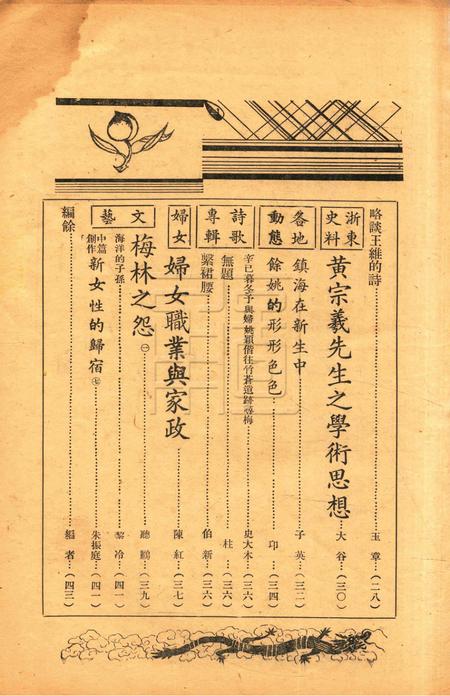 略談王維的詩……玉章…(二八)
浙東史料
黃宗羲先生之學術思想……大谷…(三〇)
各地動態
鎮海在新生中……子英…(三二)
餘姚的形形色色……印…(三四)
詩歌專輯
辛巳暮冬予與婦姚穎偕往竹蒼遺跡尋梅……史大木…(三六)
無題……杜…(三六)
繫裙腰……伯新…(三六)
婦女
婦女職業與家政……陳紅…(三七)
文藝
梅林之怨㊀……聽鸝…(三九)
海洋的子孫……黎冷…(四一)
中篇創作「新女性的歸宿㊆……朱振庭…(四一)
編餘……編者…(四三)